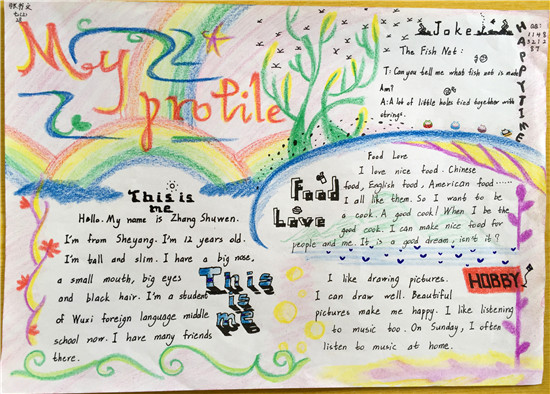 My
profile
Joke
HAPPYTIME
The Fish Net:
T: Can you tell me what fish net is made
Ann?
A: A lot of little holes tied together with
strings.
This is
me
Hello. My name is Zhang Shuwen.
I'm from Sheyang. I'm 12 years old.
I'm tall and slim. I have a big nose,
a small mouth, big eyes
and black hair. I'm a student
of Wuxi foreign language middle
school now. I have many friends
there.
This
is
me
Food
Love
Food Love
I love nice food. Chinese
food, English food, American food……
I all like them. So I want to be
a cook. A good cook! When I be the
good cook. I can make nice food for
people and me. It is a good dream, isn't it?
HOBBY
I like drawing pictures.
I can draw well. Beautiful
pictures make me happy. I like listening
to music too. On Sunday, I often
listen to music at home.